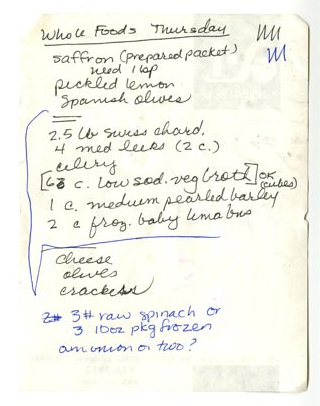 Whole Foods Thursday
saffron (prepared packet)
need 1 tsp
pickled lemon
Spanish olives
2.5 lb swiss chard.
4 med leeks (2 c.)
celery
[6 c. low sod. veg broth] OK
(cubes)
1 c. medium pearled barley
2 c froz. baby lima bns
cheese
olives
crackers
3# raw spinach or
3 10oz pkg frozen
an onion or two?